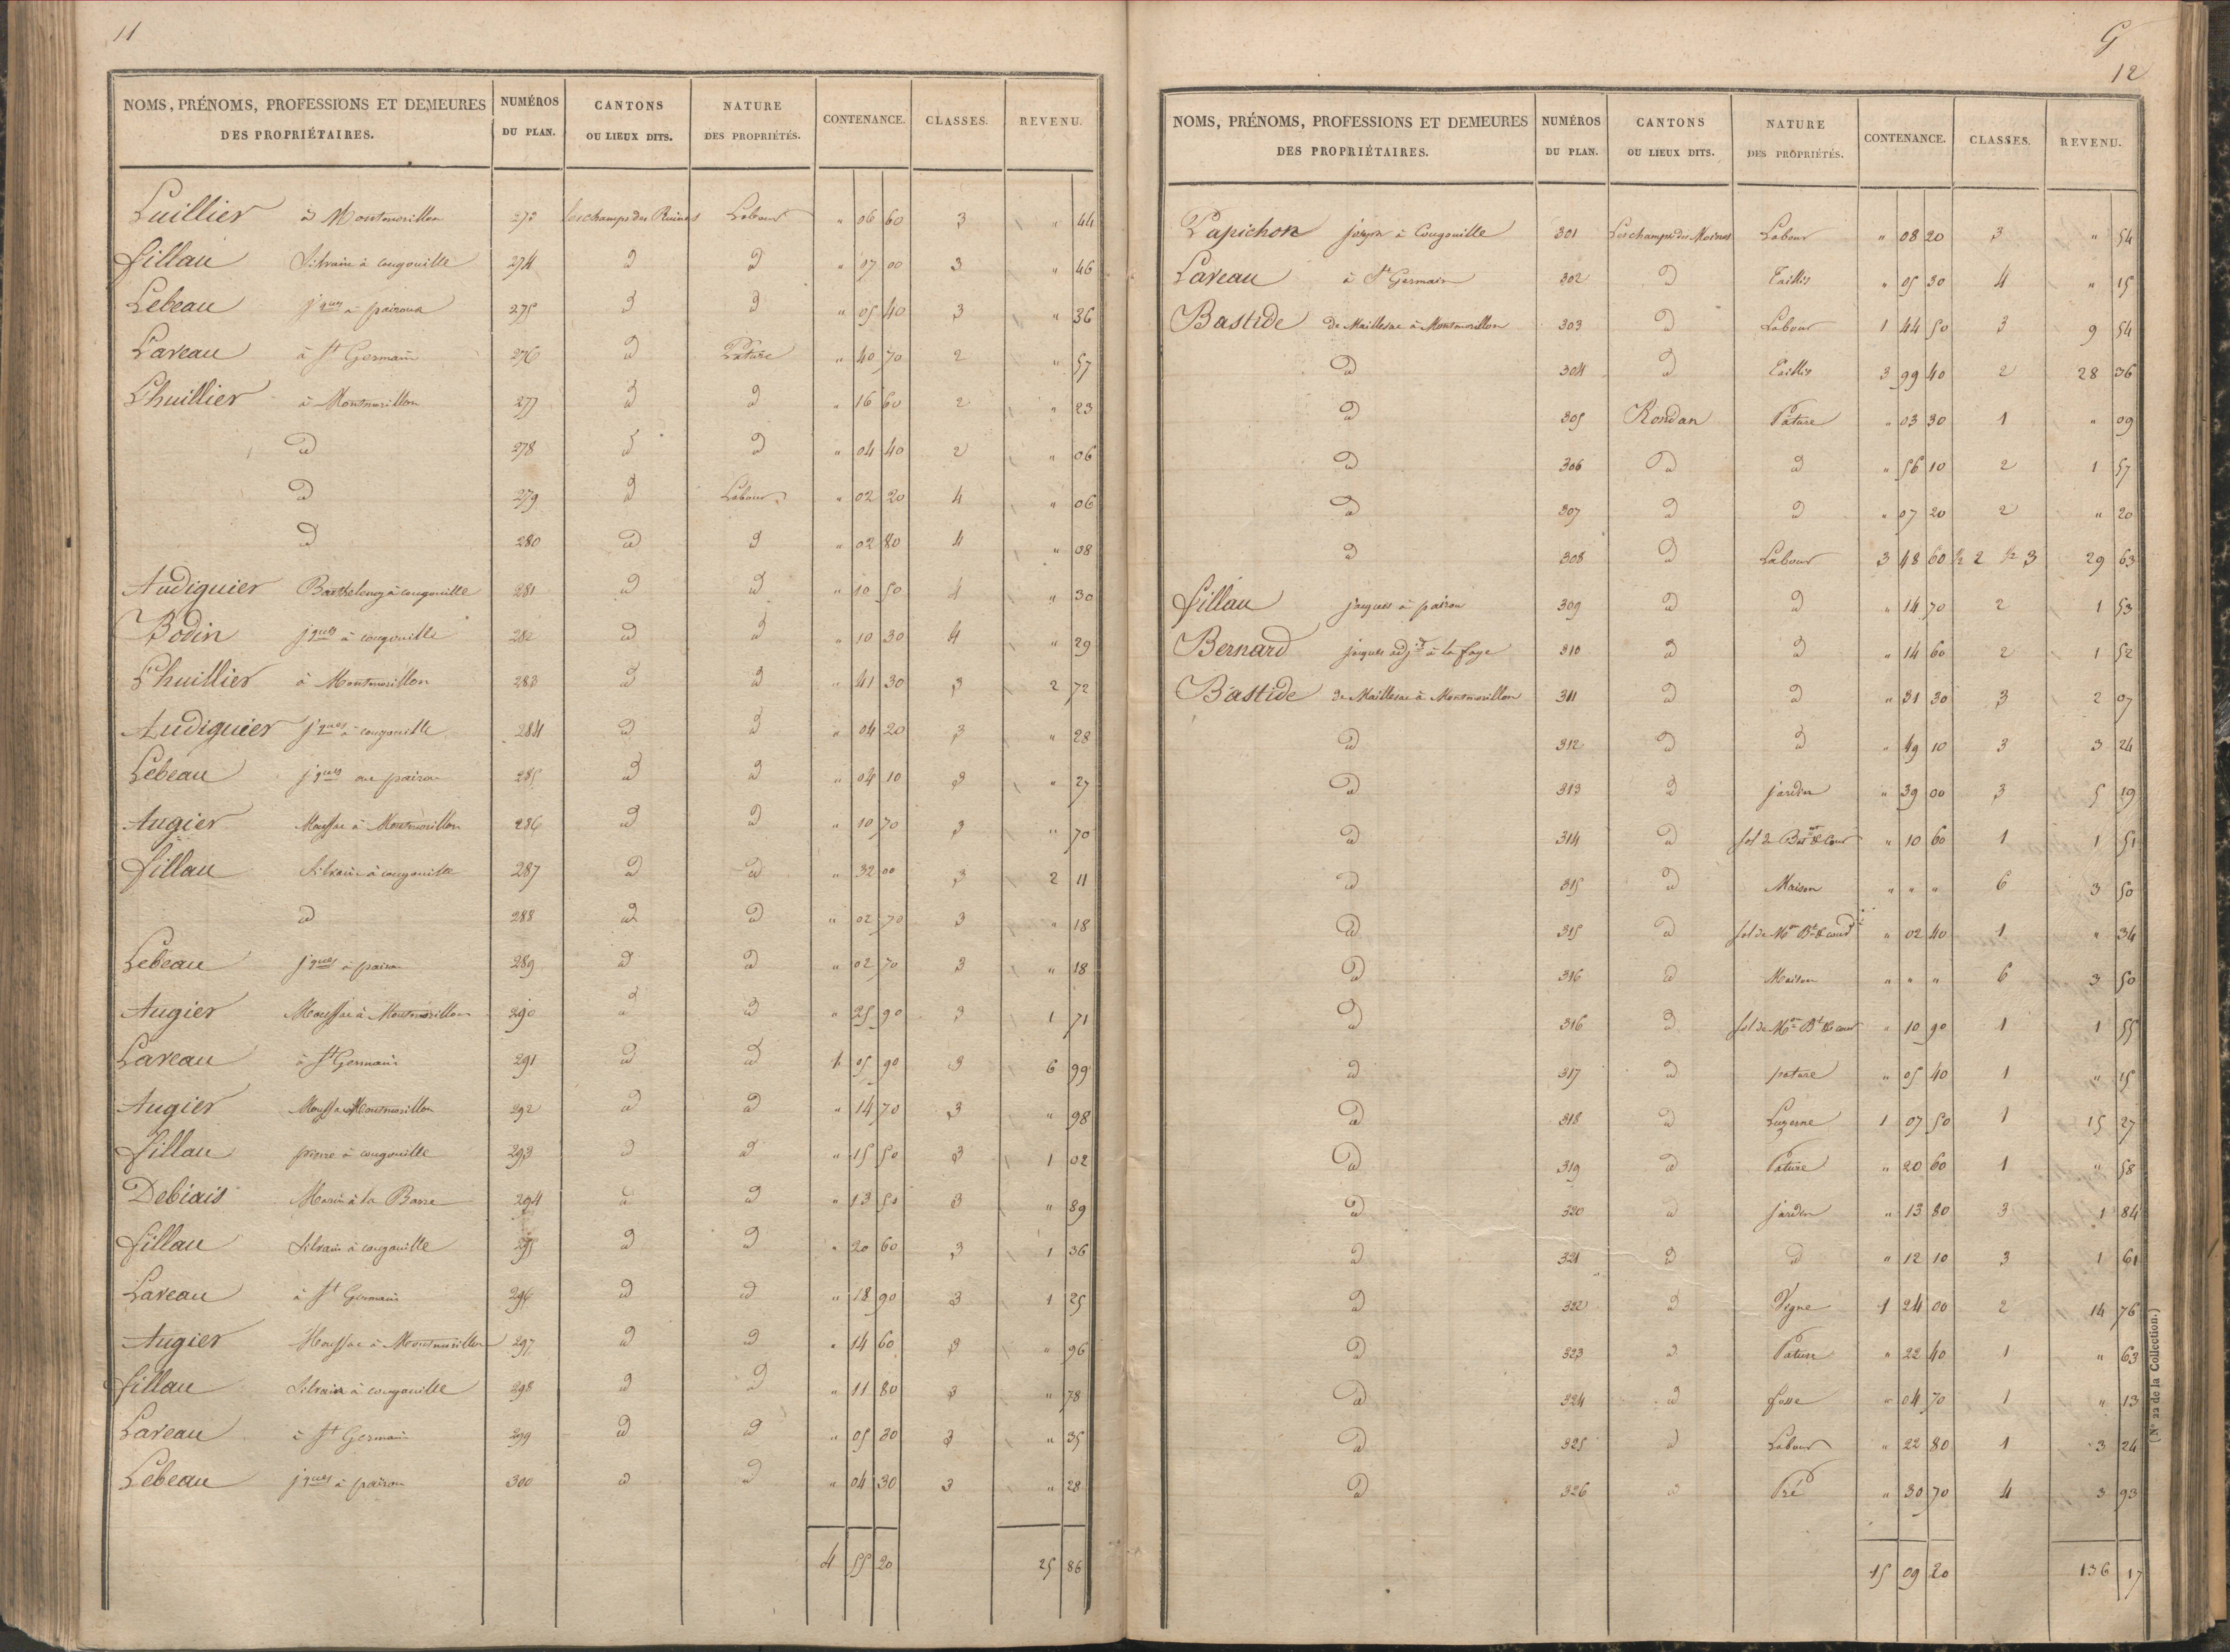 11
NOMS, PRÉNOMS, PROFESSIONS ET DEMEURES DES PROPRIÉTAIRES. NUMÉROS DU PLAN. CANTONS OU LIEUX DITS. NATURE DES PROPRIÉTÉS. CONTENANCE. CLASSES. REVENU.
Luillier à Montmorillon 273 Les champs des Labour " 06 60 3 " 44
fillau Silvain à cougouille 274 d d " 07 00 3 " 46
Lebeau jques à pairoux 275 d d " 05 40 3 " 36
Laveau à St Germain 276 d Pature " 40 70 2 " 57
Lhuillier à Montmorillon 277 d d " 16 60 2 " 23
d 278 d d " 04 40 2 " 06
d 279 d Labour " 02 20 4 " 06
d 280 d d " 02 80 4 " 08
Audiguier Barthelemy à cougouille 281 d d " 10 50 4 " 30
Bodin jques à cougouille 282 d d " 10 30 4 " 29
Lhuillier à Montmorillon 283 d d " 41 30 3 2 72
Audiguier jques à cougouille 284 d d " 04 20 3 " 28
Lebeau jques au pairou 285 d d " 04 10 3 " 27
Augier Moussac à Montmorillon 286 d d " 10 70 3 " 70
fillau Silvain à cougouille 287 d d " 32 00 3 2 11
d 288 d d " 02 70 3 " 18
Lebeau jques à pairou 289 d d " 02 70 3 " 18
Augier Moussac à Montmorillon 290 d d " 25 90 3 1 71
Laveau à St Germain 291 d d 1 05 90 3 6 99
Augier Moussac à Montmorillon 292 d d " 14 70 3 " 98
fillau pierre à cougouille 293 d d " 15 50 3 1 02
Debiais Marin à la Barre 294 d d " 13 50 3 " 89
fillau Silvain à cougouille 295 d d " 20 60 3 1 36
Laveau à St Germain 296 d d " 18 90 3 1 25
Augier Moussac à Montmorillon 297 d d " 14 60 3 " 96
fillau Silvain à cougouille 298 d d " 11 80 3 " 78
Laveau à St Germain 299 d d " 05 30 3 " 35
Lebeau jques à pairou 300 d d " 04 30 3 " 28
4 55 20 25 86
G
12
NOMS, PRÉNOMS, PROFESSIONS ET DEMEURES DES PROPRIÉTAIRES. NUMÉROS DU PLAN. CANTONS OU LIEUX DITS. NATURE DES PROPRIÉTÉS. CONTENANCE. CLASSES. REVENU.
Papichon à Cougouille 301 Les champs des Moines Labour " 08 20 3 " 54
Laveau à St Germain 302 d Taillis " 05 30 4 " 15
Bastide de Maillesac à Montmorillon 303 d Labour 1 44 50 3 9 54
d 304 d Taillis 3 99 40 2 28 36
d 305 Rondan Pature " 03 30 1 " 09
d 306 d d " 56 10 2 1 57
d 307 d d " 07 20 2 " 20
d 308 d Labour 3 48 60 ½ 2 ½ 3 29 63
fillau jacques à pairou 309 d d " 14 70 2 1 53
Bernard jacques adjt à la faye 310 d d " 14 60 2 1 52
Bastide de Maillesac à Montmorillon 311 d d " 31 30 3 2 07
d 312 d d " 49 10 3 3 24
d 313 d jardin " 39 00 3 5 19
d 314 d sol de Bat & Cour " 10 60 1 1 51
d 315 d Maison " " " 6 3 50
d 315 d sol de Mon Bt & cour " 02 40 1 " 34
d 316 d Maison " " " 6 3 50
d 316 d sol de Mon Bt & cour " 10 90 1 1 55
d 317 d pature " 05 40 1 " 15
d 318 d Luzerne 1 07 50 1 15 27
d 319 d Pature " 20 60 1 " 58
d 320 d jardin " 13 80 3 1 84
d 321 d d " 12 10 3 1 61
d 322 d Vigne 1 24 00 2 14 76
d 323 d Pature " 22 40 1 " 63
d 324 d fosse " 04 70 1 " 13
d 325 d Labour " 22 80 1 3 24
d 326 d Pré " 30 70 4 3 93
15 09 20 136 17
(N° 22 de la Collection.)